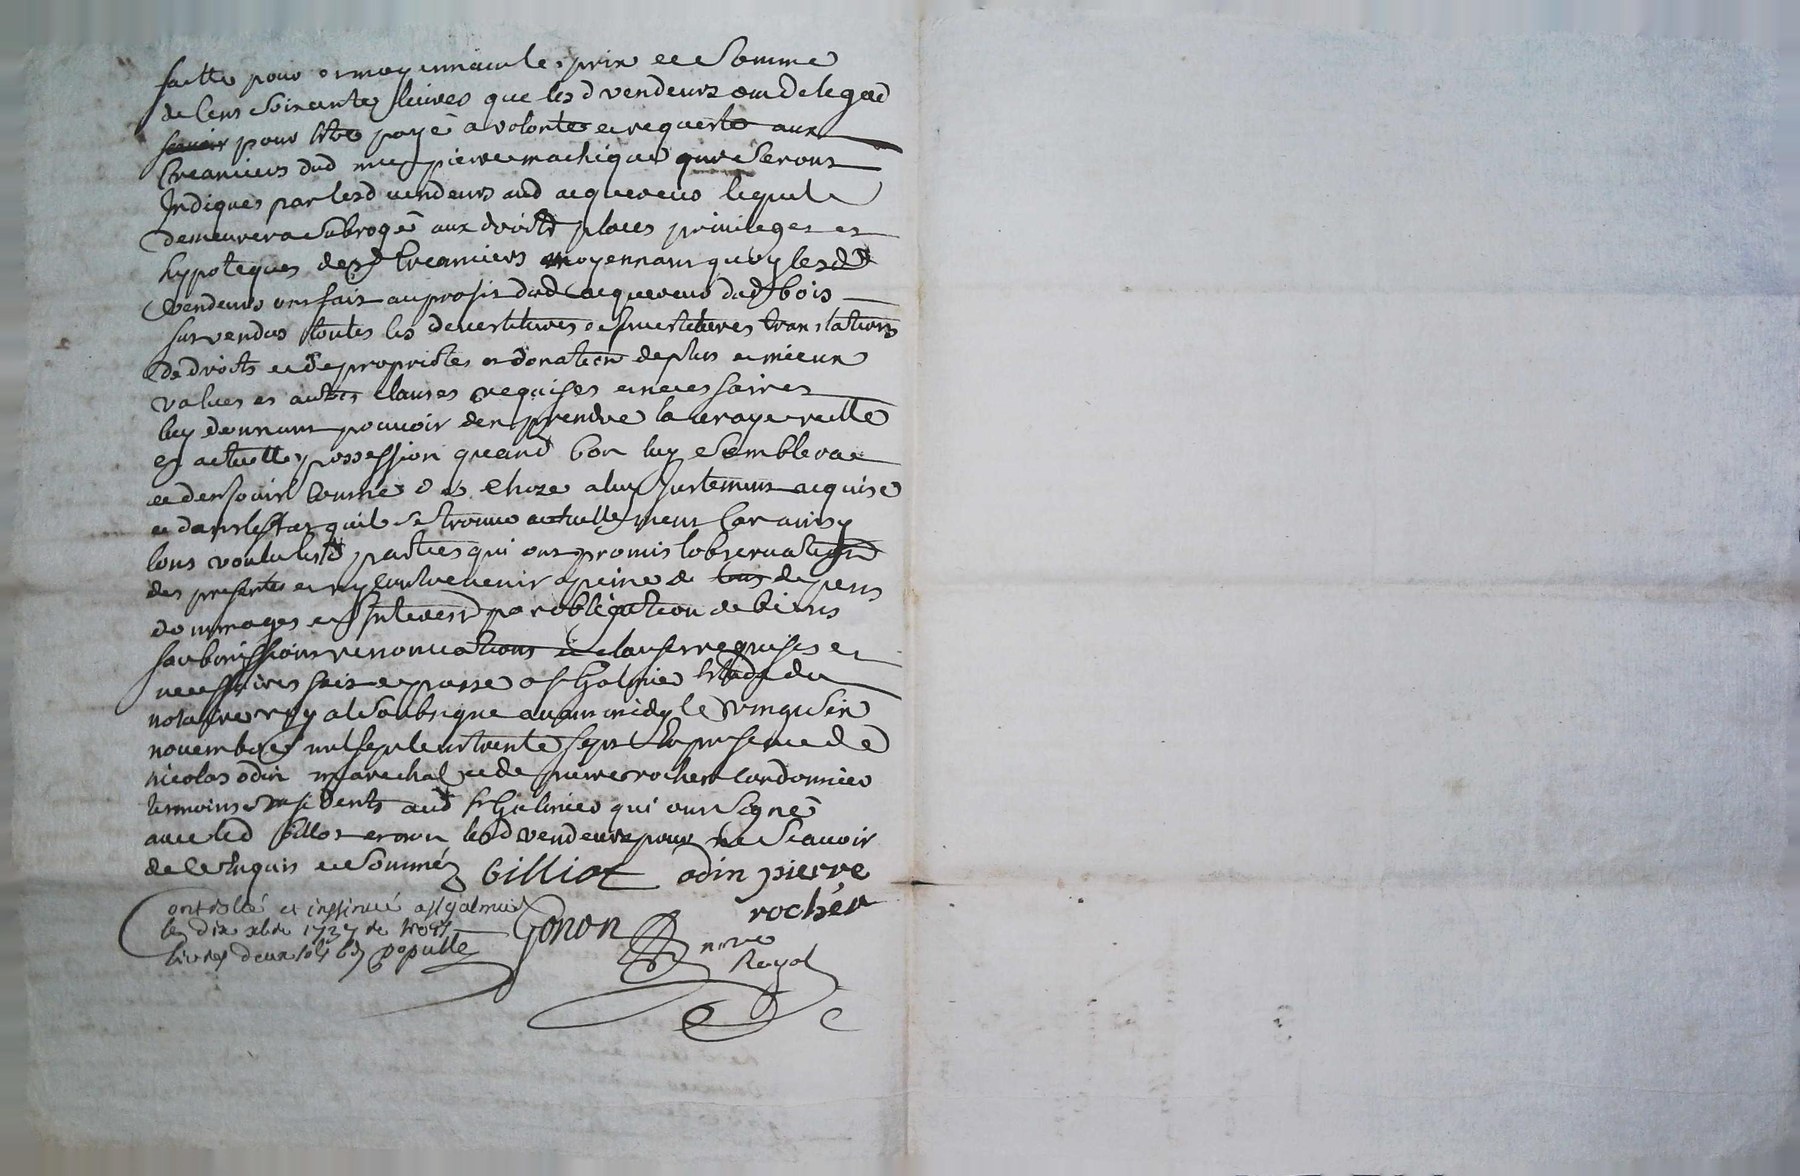 faitte pour et moyennant le prix et somme
de cent soixante livres que lesd vendeurs ont delegué
pour estre payé a volonté et requeste aux
creanciers dud me pierre machique qui seront
Indiques par lesd vendeurs aud acquereur lequel
demeurera subrogé aux droits places privileges et
hypoteques desd creanciers moyennant quoy lesd
vendeurs ont fait au profit dud acquereur dud bois
sus vendus toutes les devestitures Investitures translations
de droits et de proprietes et donation de plus et mieux
values et autres clauses requises et necessaires
luy donnant pouvoir den prendre la vraye reelle
et actuelle possession quand bon luy semblera
et den jouir comme de chose a luy justement acquise
et dans lestat quil se trouve actuellement Car ainsy
lont voulu lesd parties qui ont promis lobservation
des presentes et ny contrevenir a peine de tous depens
dommages et Interest par obligation de biens
soubmissions renonciations et clauses requises et
necessaires fait et passe a st Galmier estude du
notaire royal soubsigne avant midy le vingt six
novembre mil sept cent trente sept En presence de
nicolas odin marechal et de pierre rocher cordonnier
temoins residents aud st Galmier qui ont signé
avec led Gilliot et non lesd vendeurs pour ne scavoir
de ce Enquis et sommés Gilliot odin pierre
rocher
Controllé et insinué a st galmier
le dix xbre 1737 Gonon
livres deux sols nore
Royal